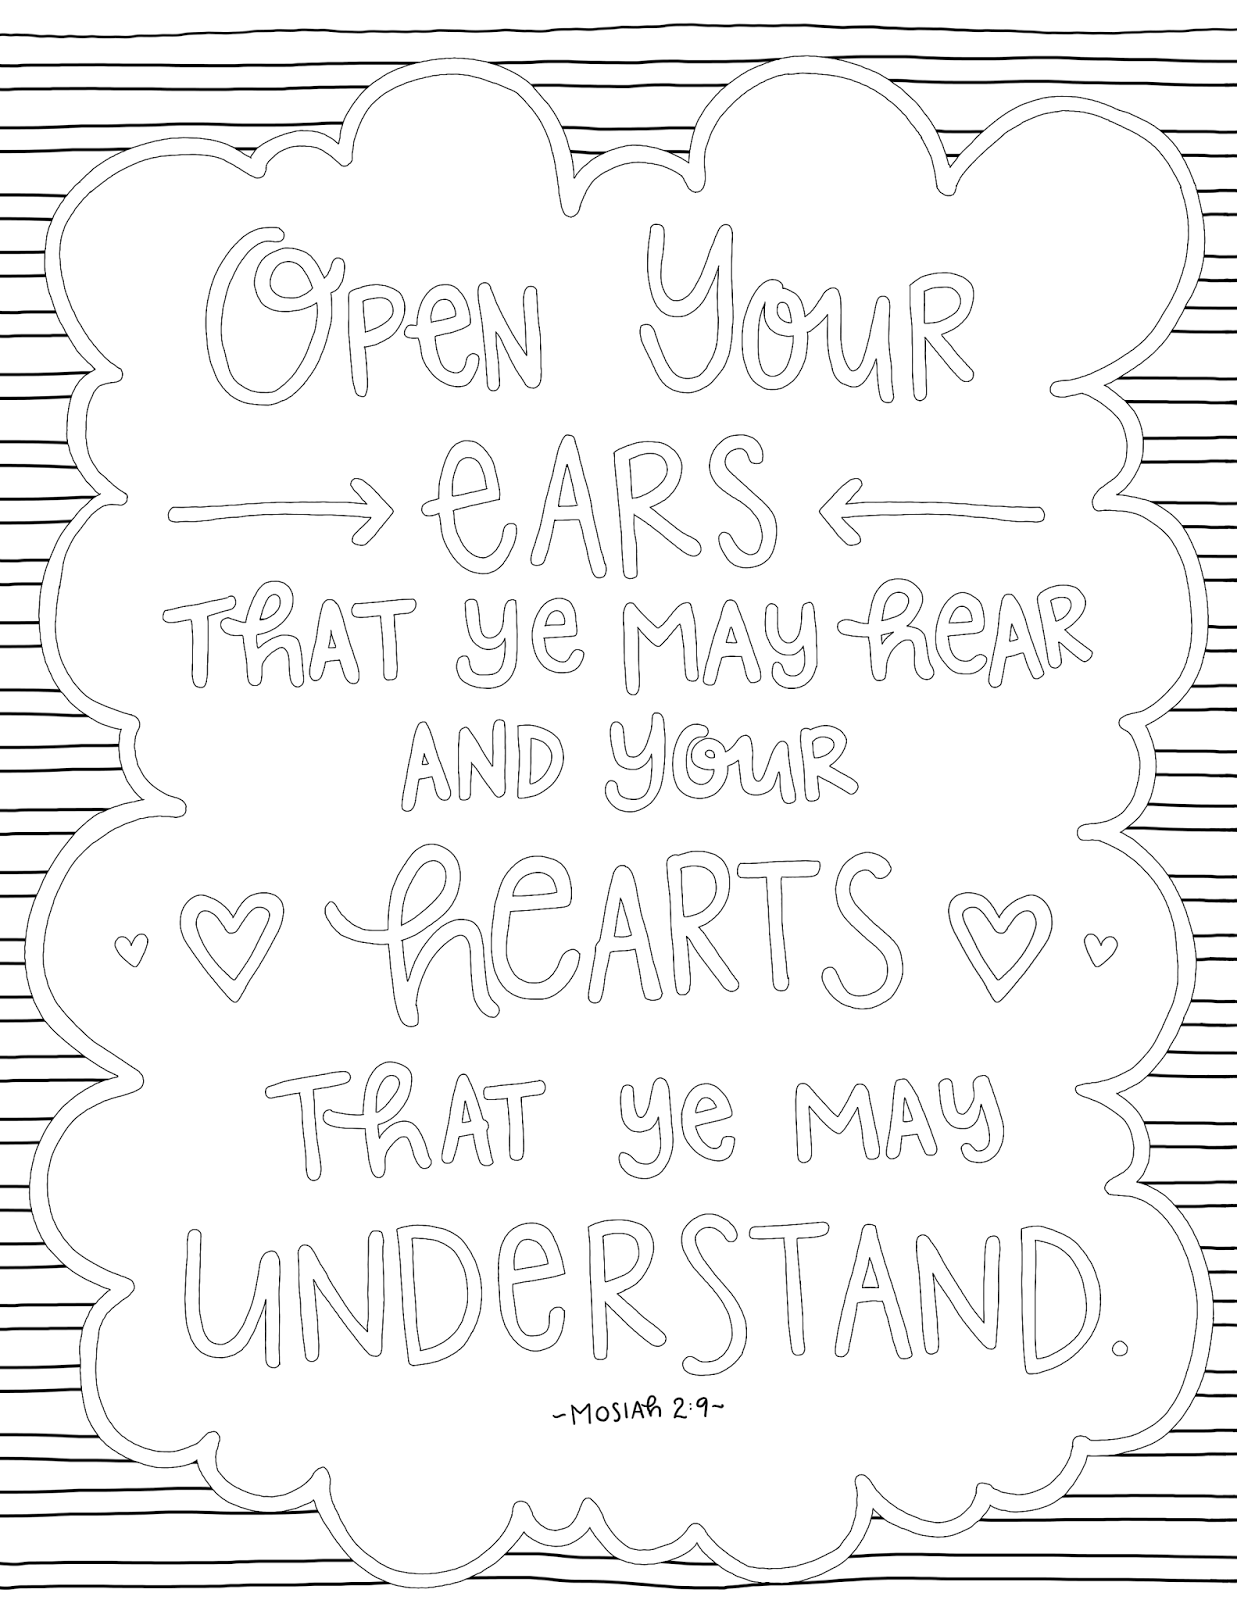 Open Your
eARS
THAT ye MAY heAR
AND yOuR
heARTS
THAT ye MAY
UNDeRSTAND.
~MOSIAh 2:9~